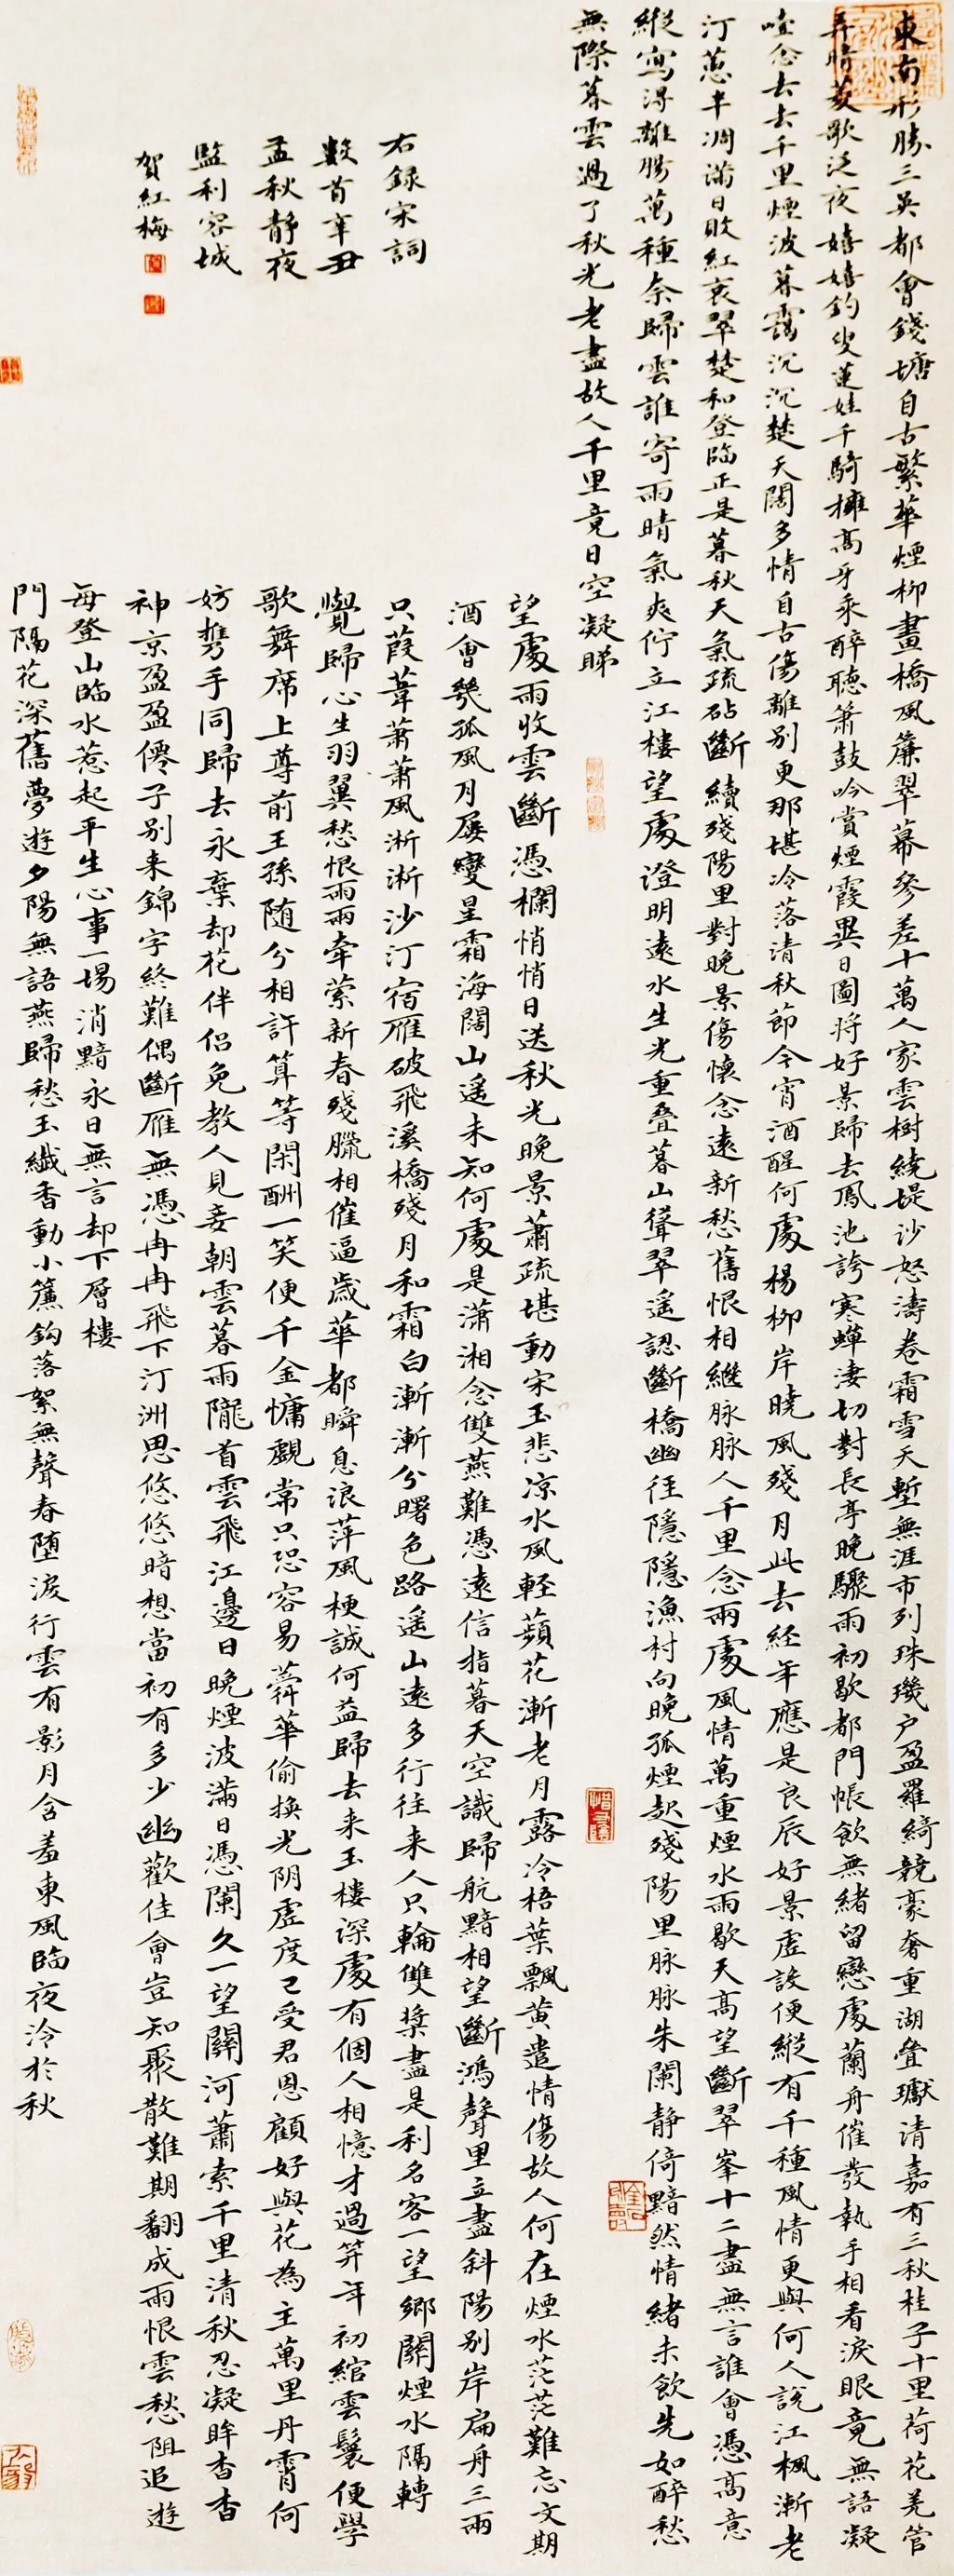 東南形勝三吳都會錢塘自古繁華煙柳畫橋風簾翠幕參差十萬人家雲樹繞堤沙怒濤卷霜雪天塹無涯市列珠璣戶盈羅綺競豪奢重湖疊巘清嘉有三秋桂子十里荷花羌管
弄晴菱歌泛夜嬉嬉釣叟蓮娃千騎擁高牙乘醉聽簫鼓吟賞煙霞異日圖將好景歸去鳳池誇寒蟬淒切對長亭晚驟雨初歇都門帳飲無緒留戀處蘭舟催發執手相看淚眼竟無語凝
噎念去去千里煙波暮靄沉沉楚天闊多情自古傷離別更那堪冷落清秋節今宵酒醒何處楊柳岸曉風殘月此去經年應是良辰好景虛設便縱有千種風情更與何人說江楓漸老
汀蕙半凋滿目敗紅衰翠楚和登臨正是暮秋天氣疏砧斷續殘陽里對晚景傷懷念遠新愁舊恨相繼脉脉人千里念兩處風情萬重煙水雨歇天高望斷翠峯十二盡無言誰會憑高意
縱寫得離腸萬種奈歸雲誰寄雨晴氣爽佇立江樓望處澄明遠水生光重疊暮山聳翠遥認斷橋幽徑隱隱漁村向晚孤煙起殘陽里脉脉朱闌静倚黯然情緒未飲先如醉愁
無際暮雲過了秋光老盡故人千里竟日空凝睇
望處雨收雲斷憑欄悄悄目送秋光晚景蕭疏堪動宋玉悲凉水風輕蘋花漸老月露冷梧葉飄黃遣情傷故人何在煙水茫茫難忘文期
酒會幾孤風月屡變星霜海闊山遥未知何處是瀟湘念雙燕難憑遠信指暮天空識歸航黯相望斷鴻聲里立盡斜陽別岸扁舟三兩
只葭葦蕭蕭風淅淅沙汀宿雁破飛溪橋殘月和霜白漸漸分曙色路遥山遠多行往来人只輪雙槳盡是利名客一望鄉關煙水隔轉
覺歸心生羽翼愁恨雨兩牽縈新春殘臘相催逼歲華都瞬息浪萍風梗誠何益歸去来玉樓深處有個人相憶才過笄年初綰雲鬟便學
歌舞席上尊前王孫隨分相許算等閑酬一笑便千金慵覷常只恐容易蕣華偷換光阴虛度已受君恩顧好與花為主萬里丹霄何
妨携手同歸去永棄却花伴侣免教人見妾朝雲暮雨隴首雲飛江邊日晚煙波滿目憑闌久一望關河蕭索千里清秋忍凝眸杳杳
神京盈盈僊子別来錦字終難偶斷雁無憑冉冉飛下汀洲思悠悠暗想當初有多少幽歡佳會豈知聚散難期翻成雨恨雲愁阻追遊
每登山臨水惹起平生心事一場消黯永日無言却下層樓
門隔花深舊夢遊夕陽無語燕歸愁玉纖香動小簾鈎落絮無聲春墮淚行雲有影月含羞東風臨夜泠於秋
右録宋詞
數首辛丑
孟秋靜夜
監利容城
賀紅梅